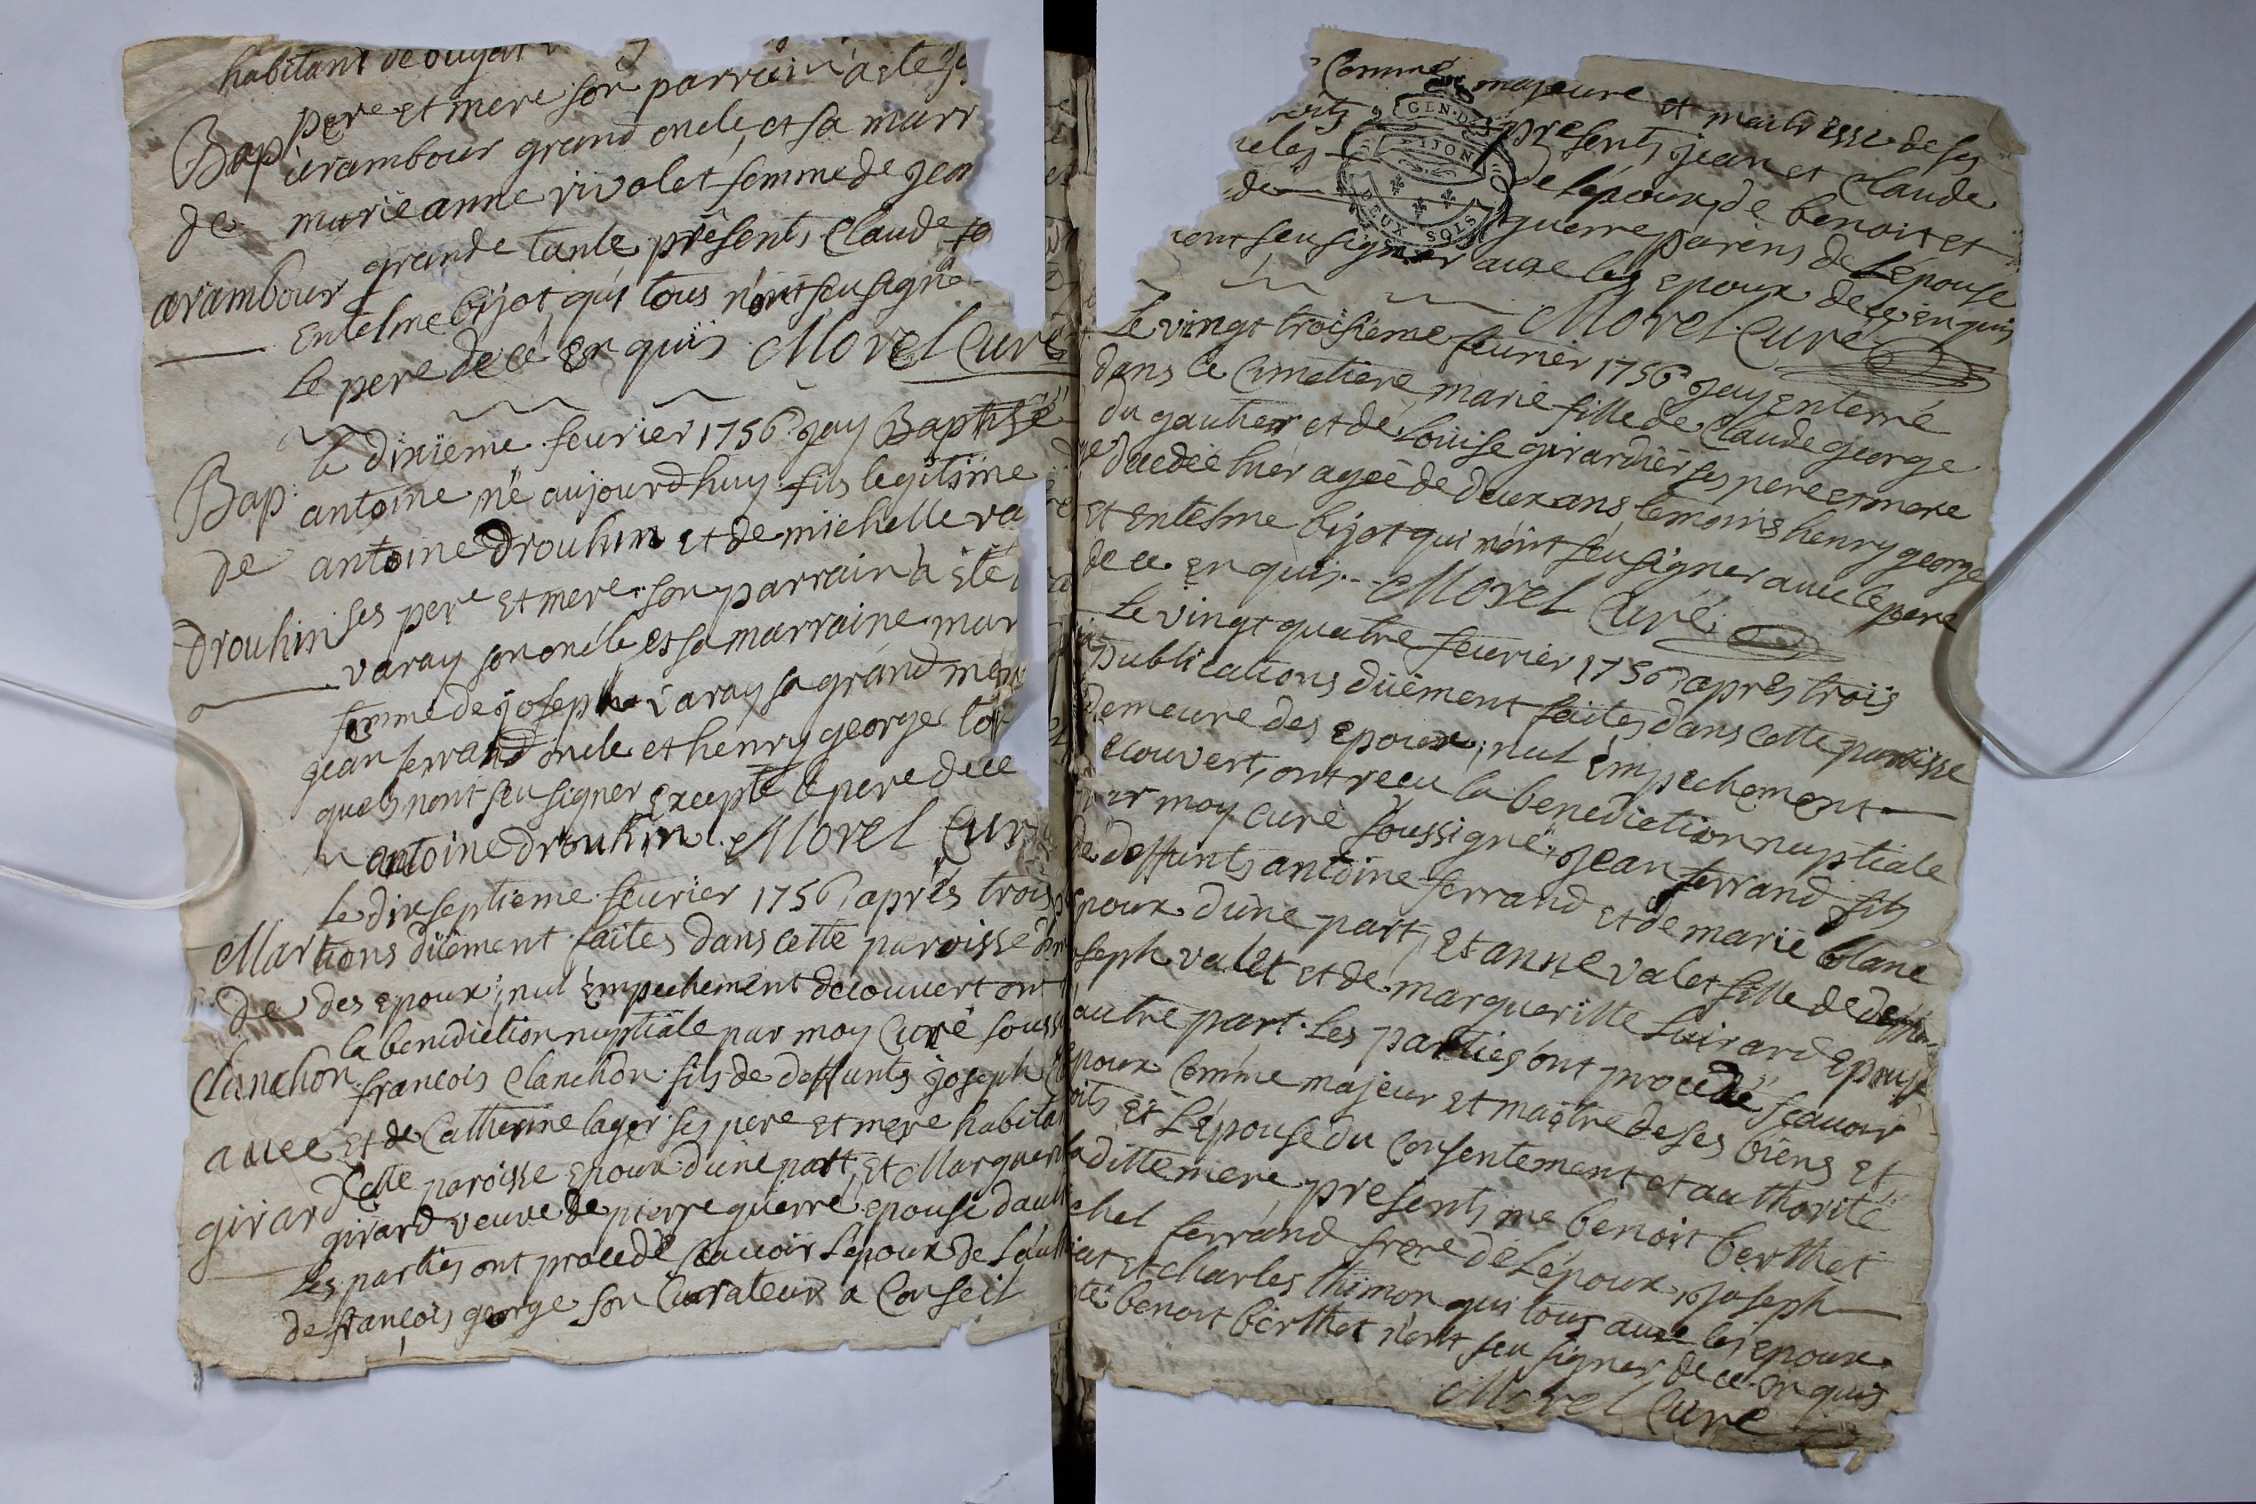 habitant de ougat
père et mere son parrain a ete
Bap. arambour grand oncle, et sa marr
de marieanne vivolet femme de jean
arambour grande tante présents Claude
Entelme bijot, qui tous n'ont seu signé
le pere de cé Enquis Morel Curé
le dixiême feurier 1756 jay Baptisé
Bap. antoine né aujourdhuy fils legitime
de antoine Drouhin et de michelle va
Drouhin ses pere et mere son parrain à été
varay son oncle et sa marraine mar
femme de joseph varay sa grand mere
jean ferrand oncle et henry george
quels nont seu signer Excepté le pere de ce
antoine drouhin. Morel Cur
le dixseptieme feurier 1756, aprés trois
Mar tions düëment faites dans cette paroisse
de des epoux, nul Empechement decouvert on
la benediction nuptiale par moy Curé souss
Clanchon francois Clanchon fils de deffunts joseph
auec et de Catherine lager ses pere et mere habita
girard Cette paroisse epoux d'une part, et Marguer
girard veuve de pierre guerre epouse daut
les parties ont procedé sçauoir l'epoux de l'auth
de françois george son Curateur a Conseil
Comme majeure et maitresse de ses
presents jean et Claude
GEN. DIJON
de l'epoux, de benoit et
de guerre parens de L'épouse
DEUX SOLS
nont seu signer auec les epoux de ce enquis
Morel Curé
le vingt troisiême feurier 1756 jay enterré
dans le Cimetiere marie fille de Claude george
du gauther et de Louise girardier ses pere et mere
decedée hier agée de deux ans temoins henry george
et Entelme bijot qui n'ont seu signer auec le pere
de ce enquis. Morel Curé
le vingt quatre feurier 1756 aprés trois
publications düëment faites dans cette paroisse
demeure des epoux, nul Empechement
ecouvert, ont recu la benediction nuptiale
par moy curé soussigné, jean ferrand fils
de deffunts antoine ferrand et de marie blanc
epoux d'une part, Et anne valet fille de deffun
seph valet et de margueritte Luirard Epouse
autre part. les parties ont procedé sçauoir
epoux Comme majeur et maitre de ses biens et
oits Et L'épouse du Consentement et authorité
ladittemere presents me benoit berthet
chel ferrand frere de L'époux, joseph
iat et charles thimon qui tous auec les epoux
té benoit berthet n'ont seu signer de ce enquis
Morel Curé